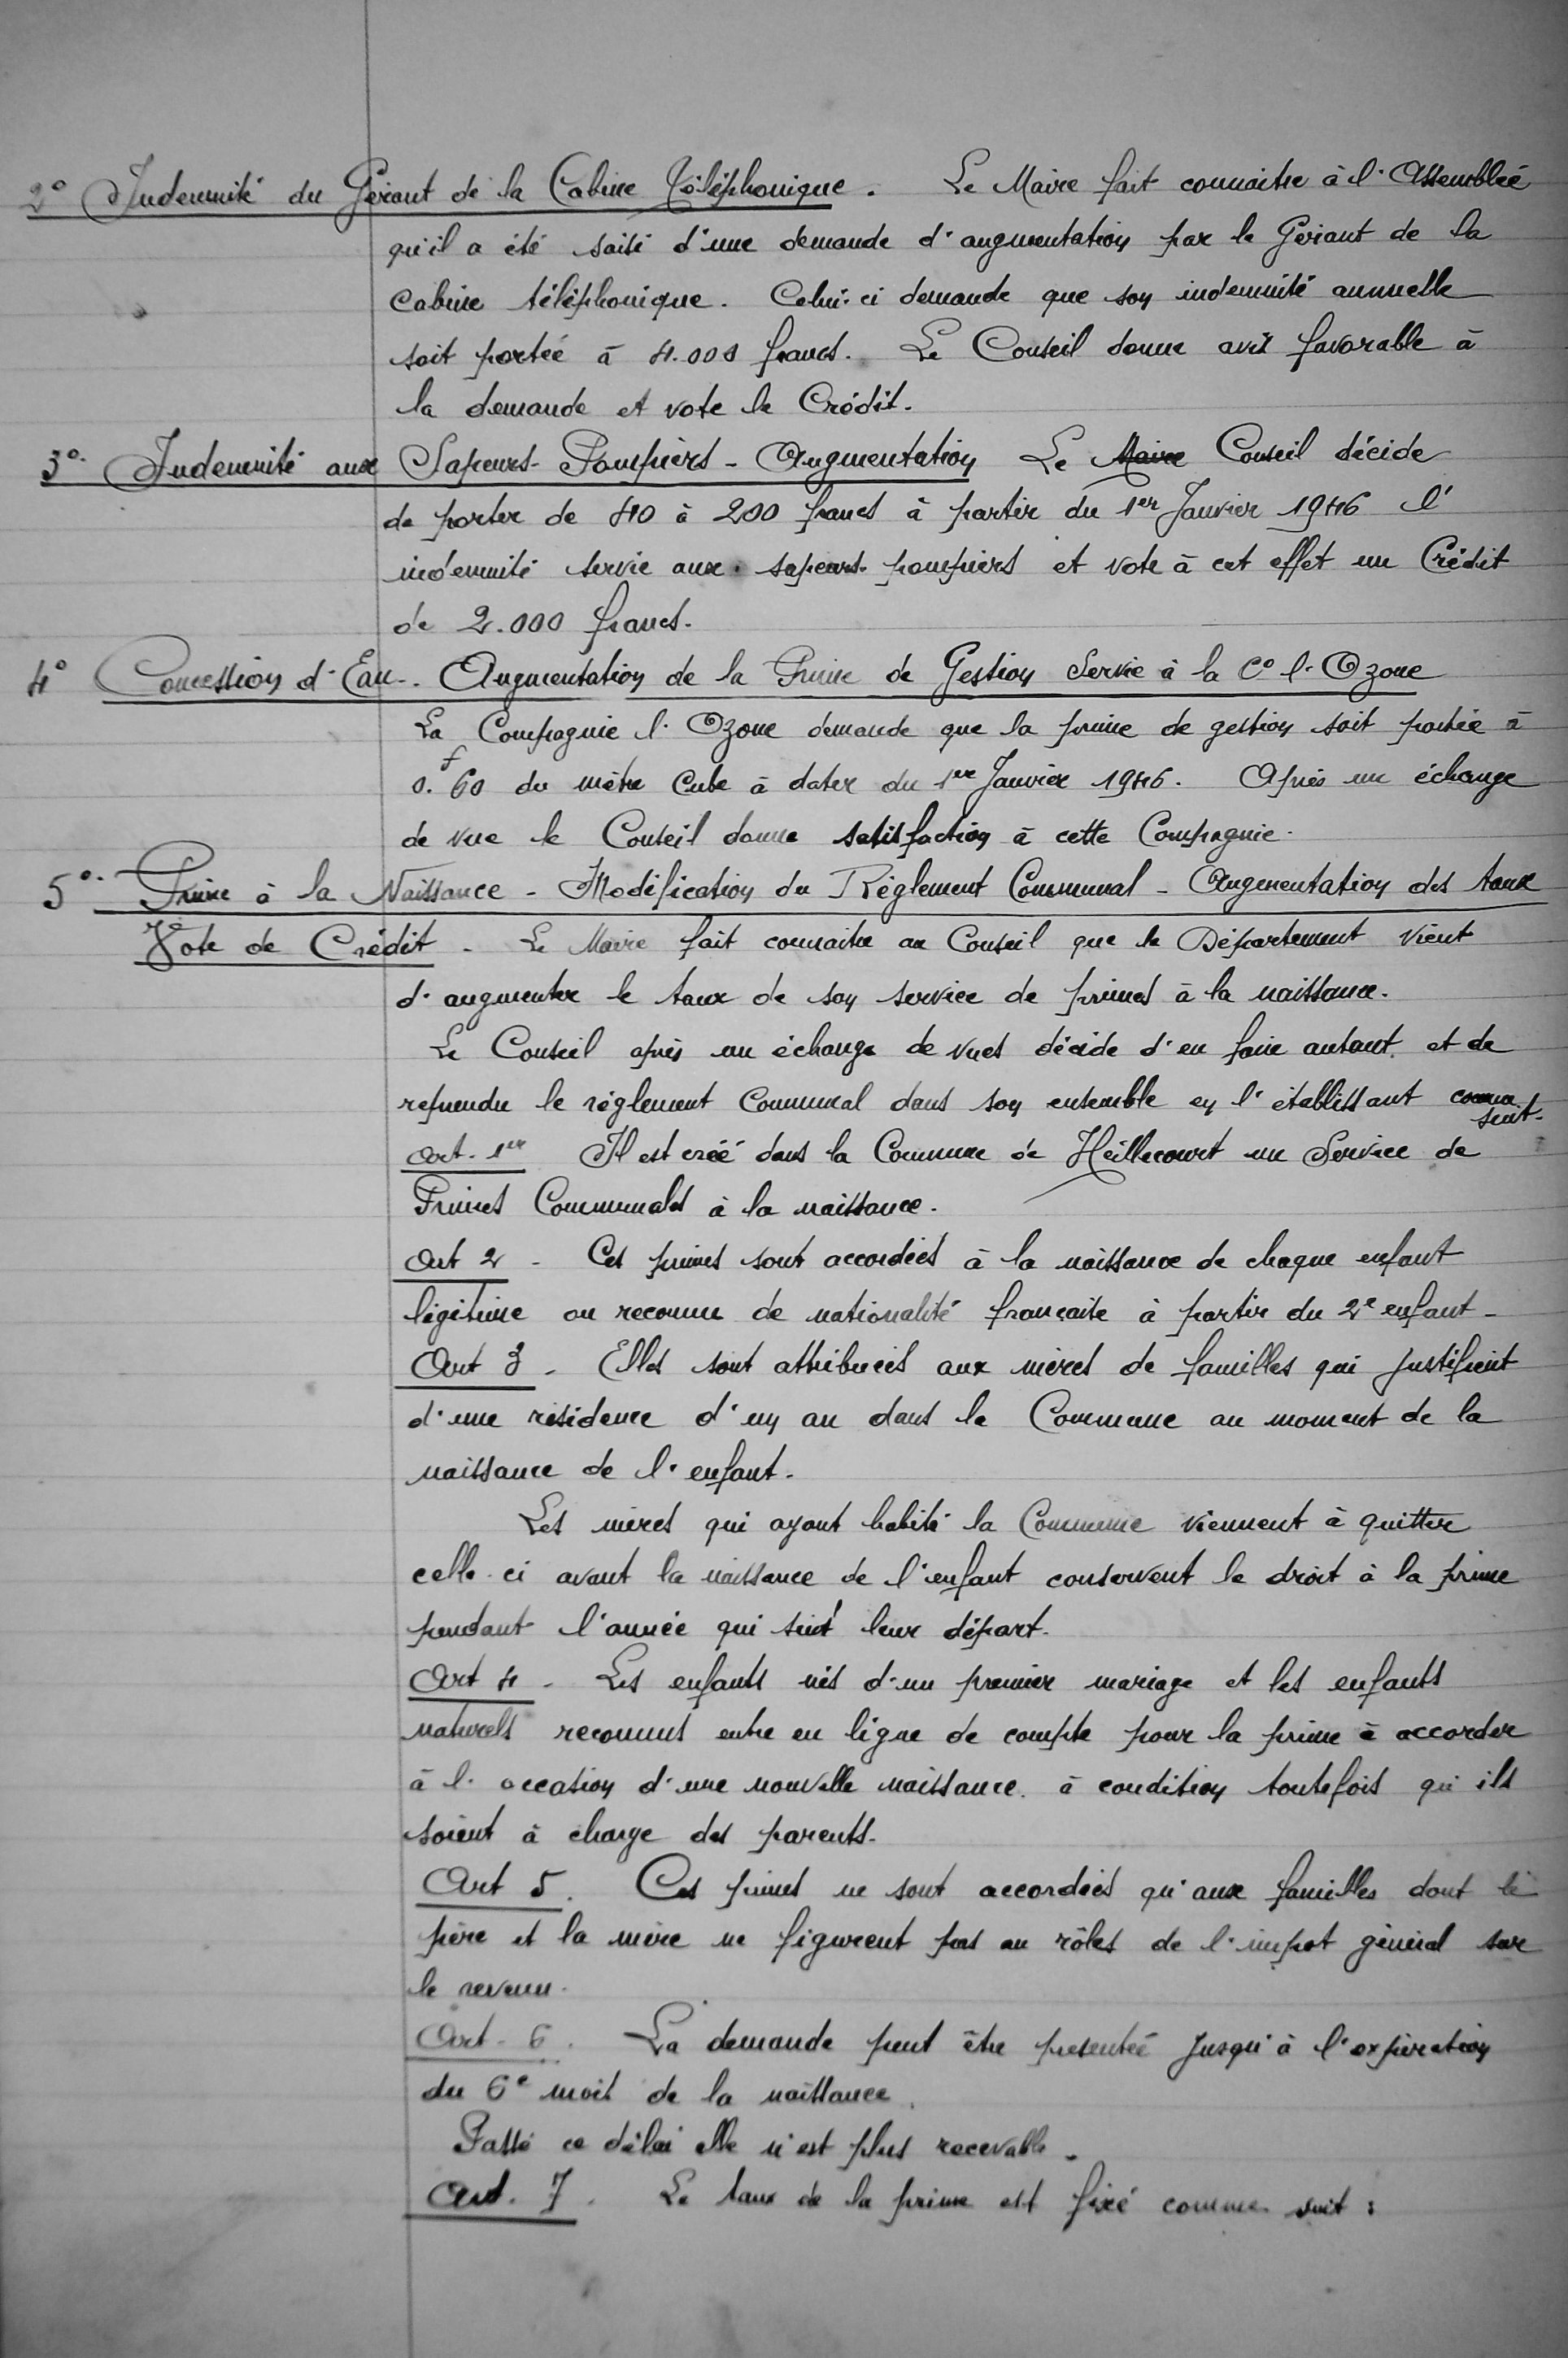 2° Indemnité du Gérant de la Cabine Téléphonique. Le Maire fait connaitre à l'Assemblée
qu'il a été saisi d'une demande d'augmentation par le Gérant de la
Cabine téléphonique. Celui-ci demande que son indemnité annuelle
soit portée à 4.000 francs. Le Conseil donne avis favorable à
la demande et vote le Crédit.
3°. Indemnité aux Sapeurs-Pompiers - Augmentation Le Maire Conseil décide
de porter de 40 à 200 francs à partir du 1er Janvier 1946 l'
indemnité servie aux sapeurs-pompiers et vote à cet effet un Crédit
de 2.000 francs.
4° Concession d'Eau. Augmentation de la Prime de Gestion Servie à la C° l'Ozone
La Compagnie l'Ozone demande que la prime de gestion soit portée à
0.f60 du mètre Cube à dater du 1er Janvier 1946. Après un échange
de vue le Conseil donne satisfaction à cette Compagnie.
5°. Prime à la Naissance - Modification du Règlement Communal - Augmentation des taux
Vote de Crédit. Le Maire fait connaitre au Conseil que le Département vient
d'augmenter le taux de son service de primes à la naissance.
Le Conseil après un échange de vues décide d'en faire autant et de
reprendre le règlement Communal dans son ensemble en l'établissant comme
suit.
Art. 1er Il est créé dans la Commune de Heillecourt un Service de
Primes Communales à la naissance.
Art 2 - Ces primes sont accordées à la naissance de chaque enfant
légitime ou reconnu de nationalité française à partir du 2e enfant -
Art 3 - Elles sont attribuées aux mères de familles qui justifient
d'une résidence d'un an dans la Commune au moment de la
naissance de l'enfant.
Les mères qui ayant habité la Commune viennent à quitter
celle-ci avant la naissance de l'enfant conservent le droit à la prime
pendant l'année qui suit leur départ.
Art 4 - Les enfants nés d'un premier mariage et les enfants
naturels reconnus entre en ligne de compte pour la prime à accorder
à l'occation d'une nouvelle naissance. à condition toutefois qu'ils
soient à charge des parents.
Art 5. Ces primes ne sont accordées qu'aux familles dont le
père et la mère ne figurent pas au rôles de l'impot général sur
le revenu.
Art - 6. La demande peut être présentée jusqu'à l'expiration
du 6e mois de la naissance.
Passé ce délai elle n'est plus recevable.
Art. 7. Le taux de la prime est fixé comme suit :